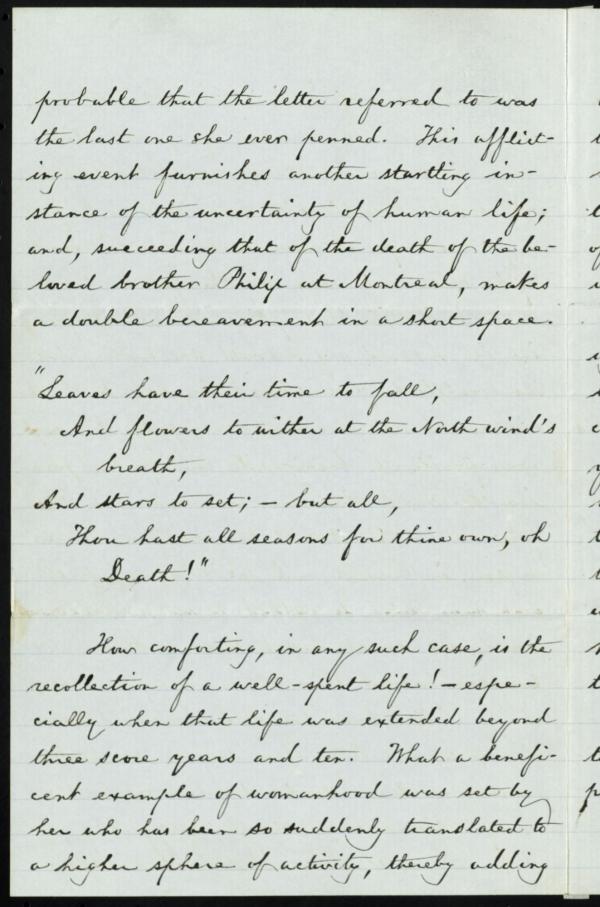 probable that the letter referred to was
the last one she ever penned. This afflict-
ing event furnishes another startling in-
stance of the uncertainty of human life;
and, succeeding that of the death of the be-
loved brother Philip at Montreal, makes
a double bereavement in a short space.
"Leaves have their time to fall,
And flowers to wither at the North wind's
breath,
And stars to set; — but all,
Thou hast all seasons for thine own, oh
Death!"
How comforting, in any such case, is the
recollection of a well-spent life! — espe-
cially when that life was extended beyond
three score years and ten. What a benefi-
cent example of womanhood was set by
her who has been so suddenly translated to
a higher sphere of activity, thereby adding